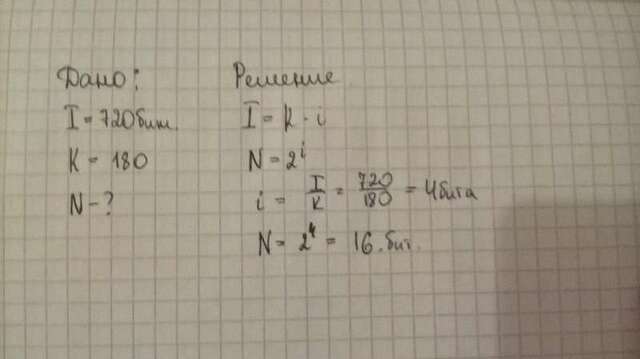 Дано:
I = 720 бит.
K = 180
N - ?
Решение
I = K · i
N = 2^i
i = I/K = 720/180 = 4 бита
N = 2^4 = 16. бит.